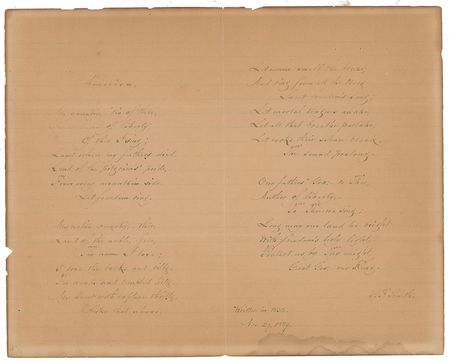 America.
My country, 'tis of thee,
Sweet land of liberty,
Of thee I sing;
Land where my fathers died,
Land of the pilgrims' pride,
From every mountain side
Let freedom ring.
My native country, thee,
Land of the noble, free,
Thy name I love;
I love thy rocks and rills,
Thy woods and templed hills,
My heart with rapture thrills
Like that above.
Let music swell the breeze,
And ring from all the trees
Sweet freedom's song;
Let mortal tongues awake,
Let all that breathe partake,
Let rocks their silence break,
The sound prolong.
Our fathers' God, to Thee,
Author of liberty,
To Thee we sing;
Long may our land be bright
With freedom's holy light,
Protect us by Thy might,
Great God, our King.
S. F. Smith.
Written in 1832.